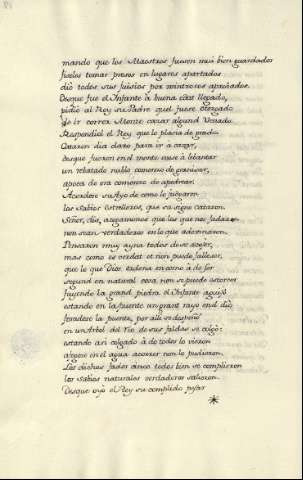 mando que los Maestros fuesen mui bien guardados
fizolos tomar presos en lugares apartados
dio todos sus juisios por mintrosos aprobados.
Desque fue el Infante à buena edat llegado,
pidió al Rey su Padre quel fuese otorgado
de ir correr Monte casar algund Venado
Respondiol el Rey que le placia de grado
Cataron dia claro para ir a cazar,
desque fueron en el monte ovose à levantar
un rebatado nublo comenso de granisar,
apoca de ora comenso de apedrear.
Acordose su Ayo de como lo jusgaron
los sabios Estrelleros, que su signo cataron.
Señor, dis, acojamonos que los que vos fadaron
non sean verdaderos en lo que adevinaron.
Pensaron muy ayna todos de se acojer,
mas como es verdat et non puede fallescer,
que lo que Dios ordena en como à de ser
segund en natural cosa, non se puede estorcer
fuyendo la grand piedra el Infante aguijó
estando en la puente un grant rayo en el dió
foradose la puente, por alli se despeñó
en un Arbol del Rio de sus faldas se colgó:
estando asi colgado à do todos lo vieron
afogose en el agua acorrer non lo pudieron.
Los dichos fados cinco todos bien se complieron
los sabios naturales verdaderos salieron.
Desque vio el Rey su complido pesar